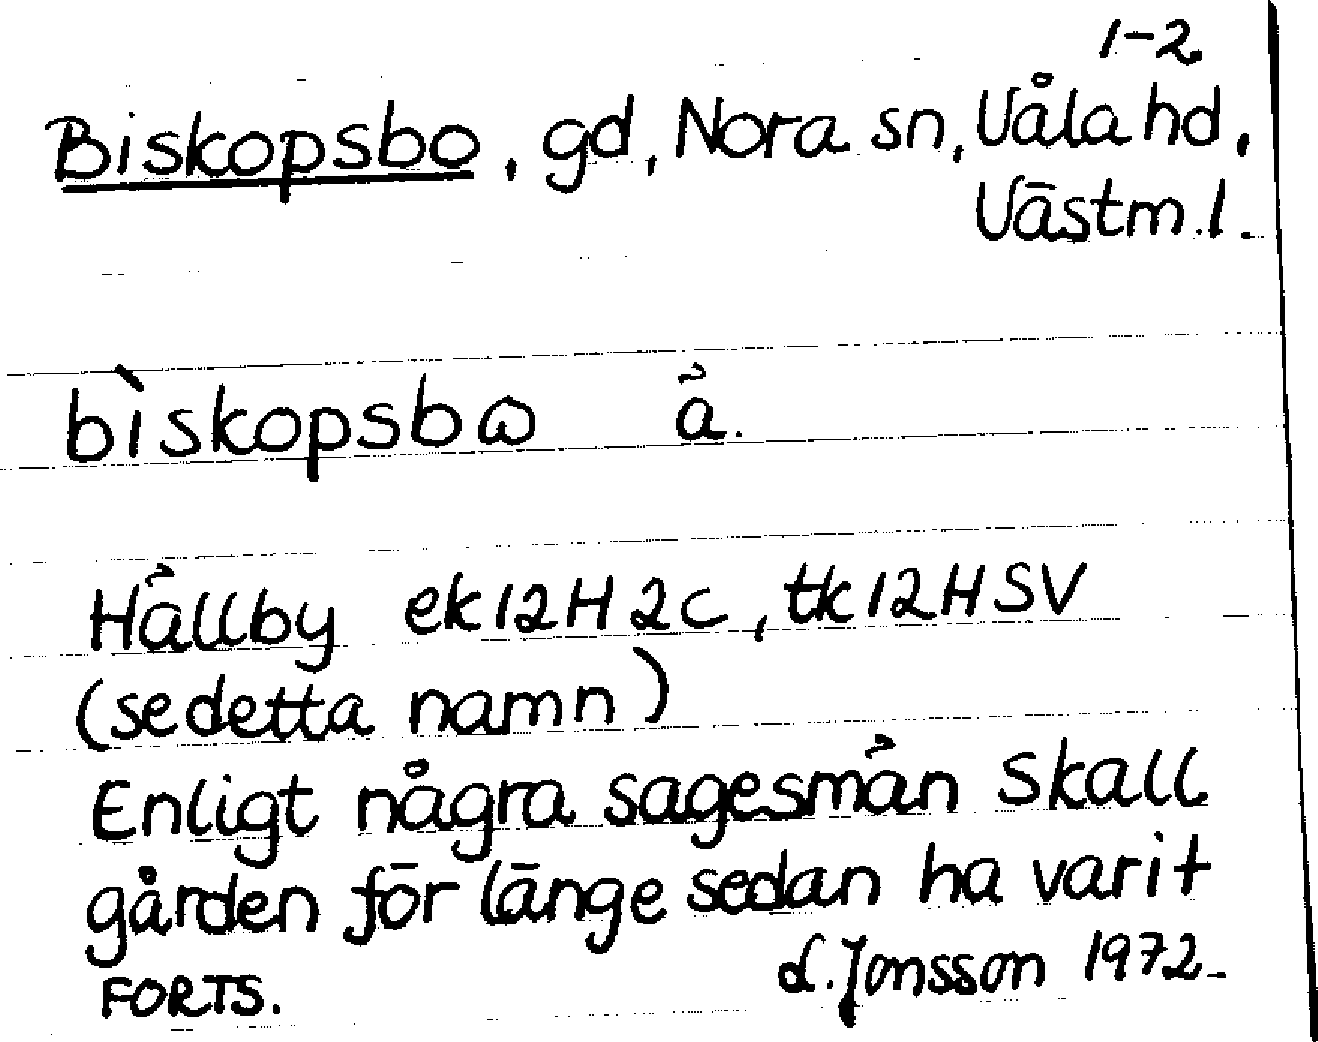 1-2
Biskopsbo, gd, Nora sn, Våla hd,
Västm. l.
bìskopsbꞷ ä.
Hällby ek 12H 2c, tk 12H SV
(se detta namn)
Enligt några sagesmän skall
gården för länge sedan ha varit
FORTS. L. Jonsson 1972